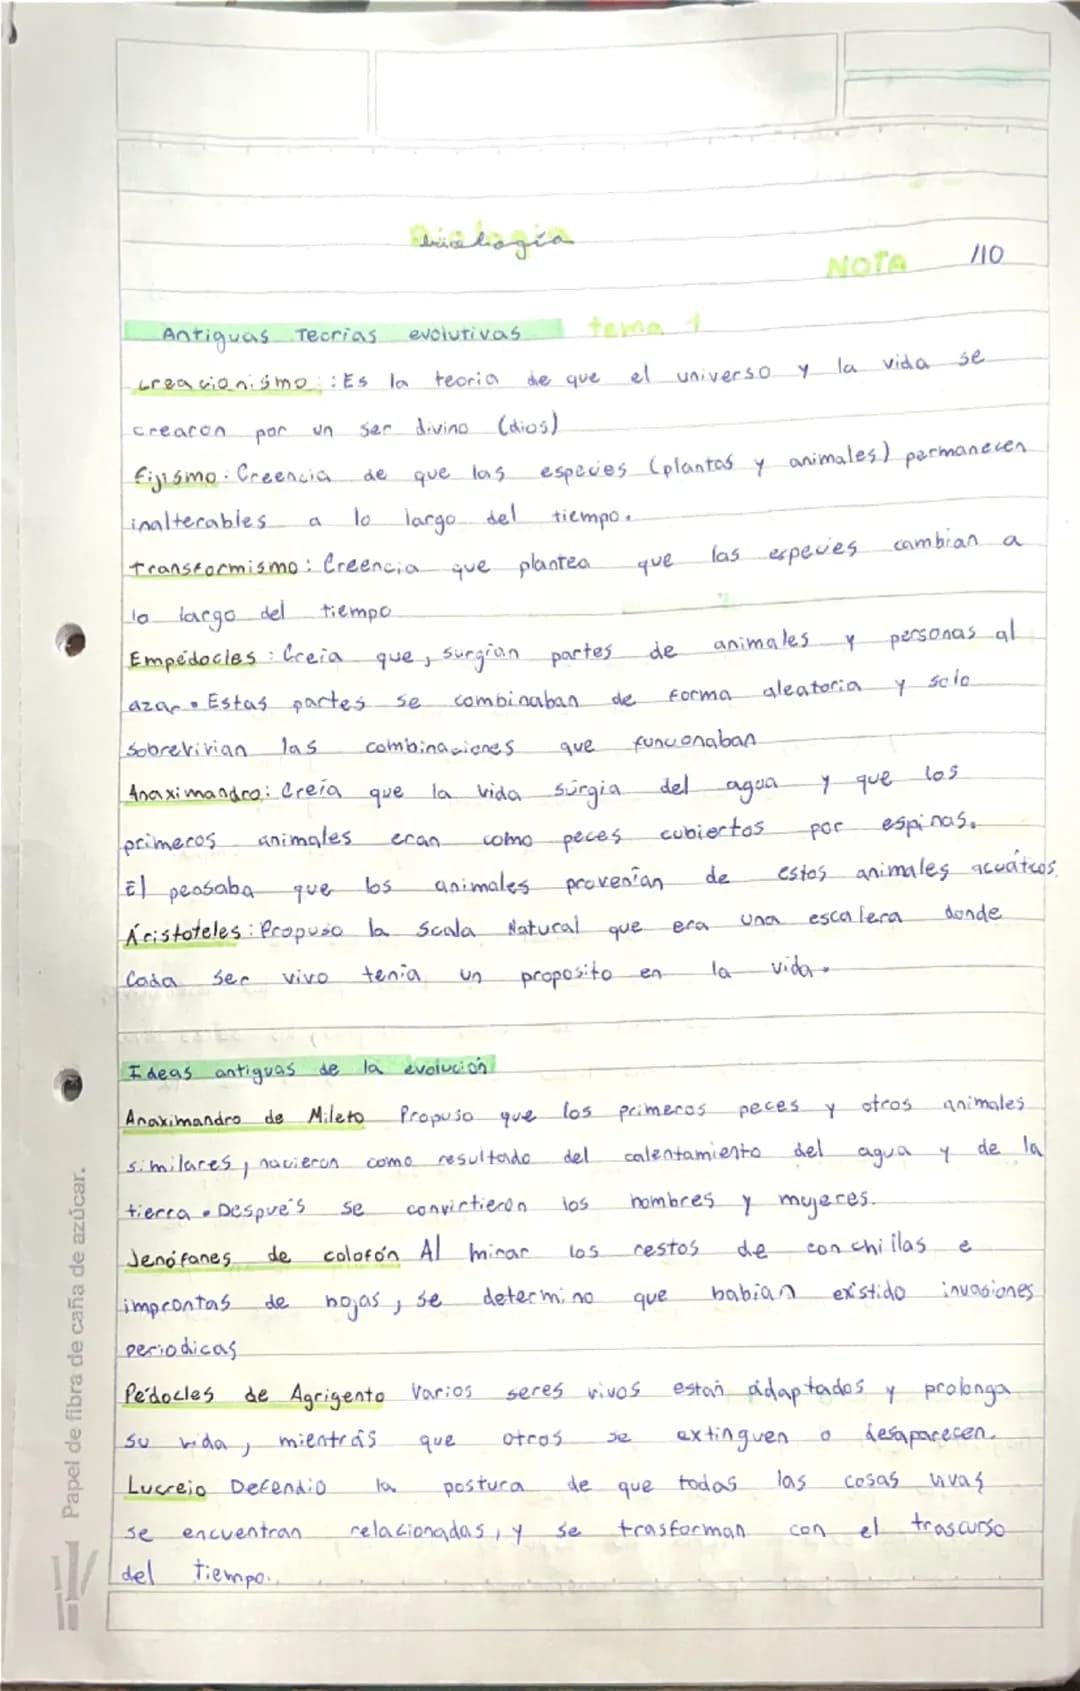 biología
NOTA /10
Antiguas Teorias evolutivas tema 1
creacionismo: Es la teoria de que el universo y la vida se
crearon por un ser divino (dios)
fijismo: Creencia de que las especies (plantas y animales) permanecen
inalterables a lo largo del tiempo.
transformismo: Creencia que plantea que las especies cambian a
lo largo del tiempo
Empédocles: Creia que, surgían partes de animales y personas al
azar. Estas partes se combinaban de forma aleatoria y solo
sobrevivian las combinaciones que funcionaban
Anaximandro: Creía que la vida súrgia del agua y que los
primeros animales eran como peces cubiertos por espinas.
El pensaba que los animales provenían de estos animales acuáticos.
Áristoteles: Propuso la Scala Natural que era una escalera donde
Cada ser vivo tenia un proposito en la vida.
Ideas antiguas de la evolución
Anaximandro de Mileto Propuso que los primeros peces y otros animales
similares, nacieron como resultado del calentamiento del agua y de la
tierra. Después se convirtieron los hombres y mujeres.
Jenófanes de colofón Al mirar los restos de conchillas e
improntas de hojas, se determino que habian existido invasiones
periodicas
Pédocles de Agrigento Varios seres vivos estan adaptados y prolonga
su vida, mientras que otros se extinguen o desaparecen.
Lucreio Defendio la postura de que todas las cosas vivas
se encuentran relacionadas, y se trasforman con el trascurso
del tiempo.
Papel de fibra de caña de azúcar.